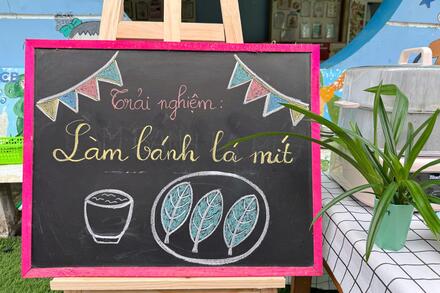 Trải nghiệm:
Làm bánh lá mít